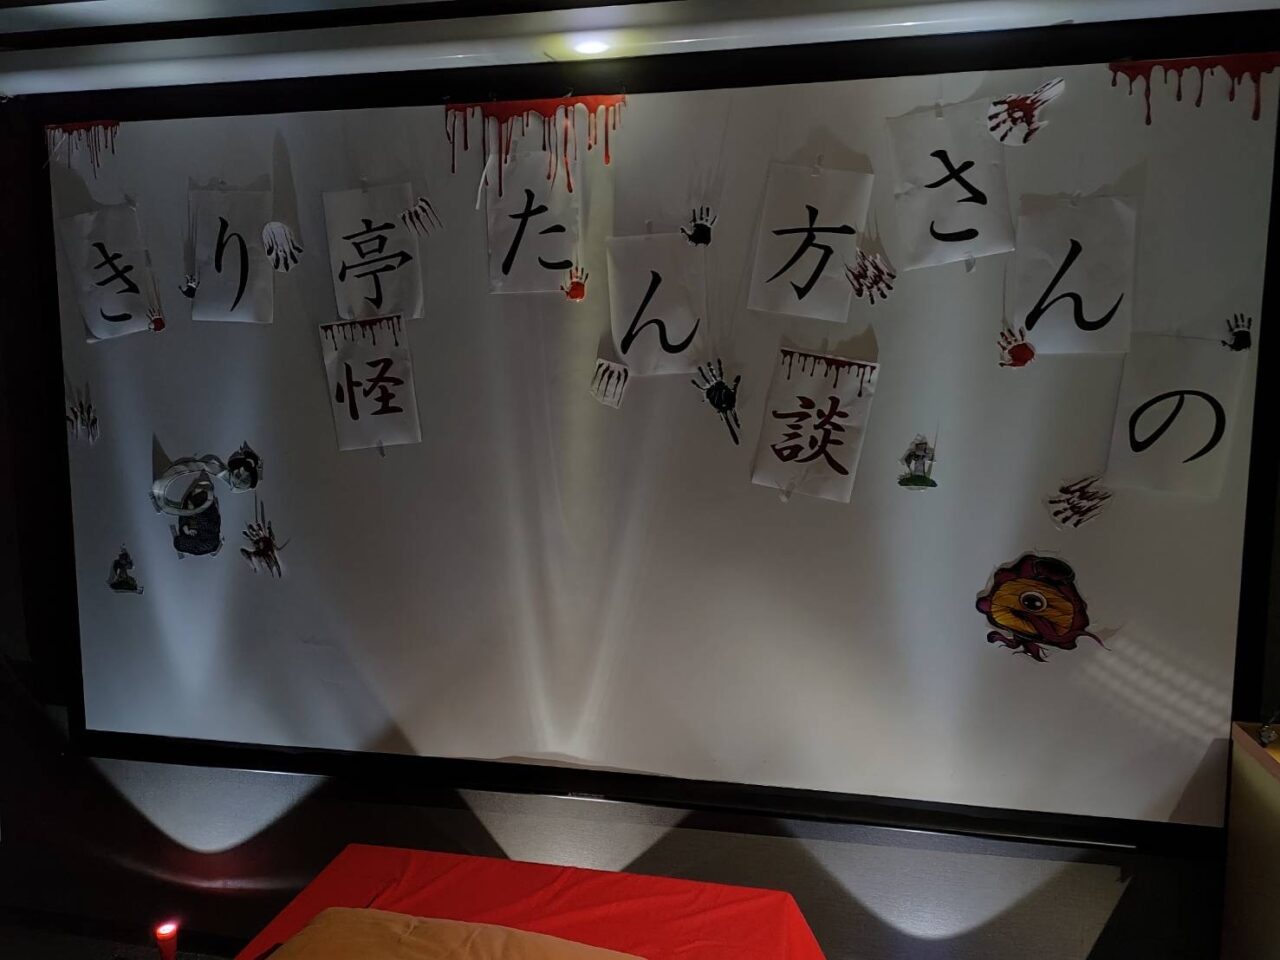 きり亭たん方さんの
怪談